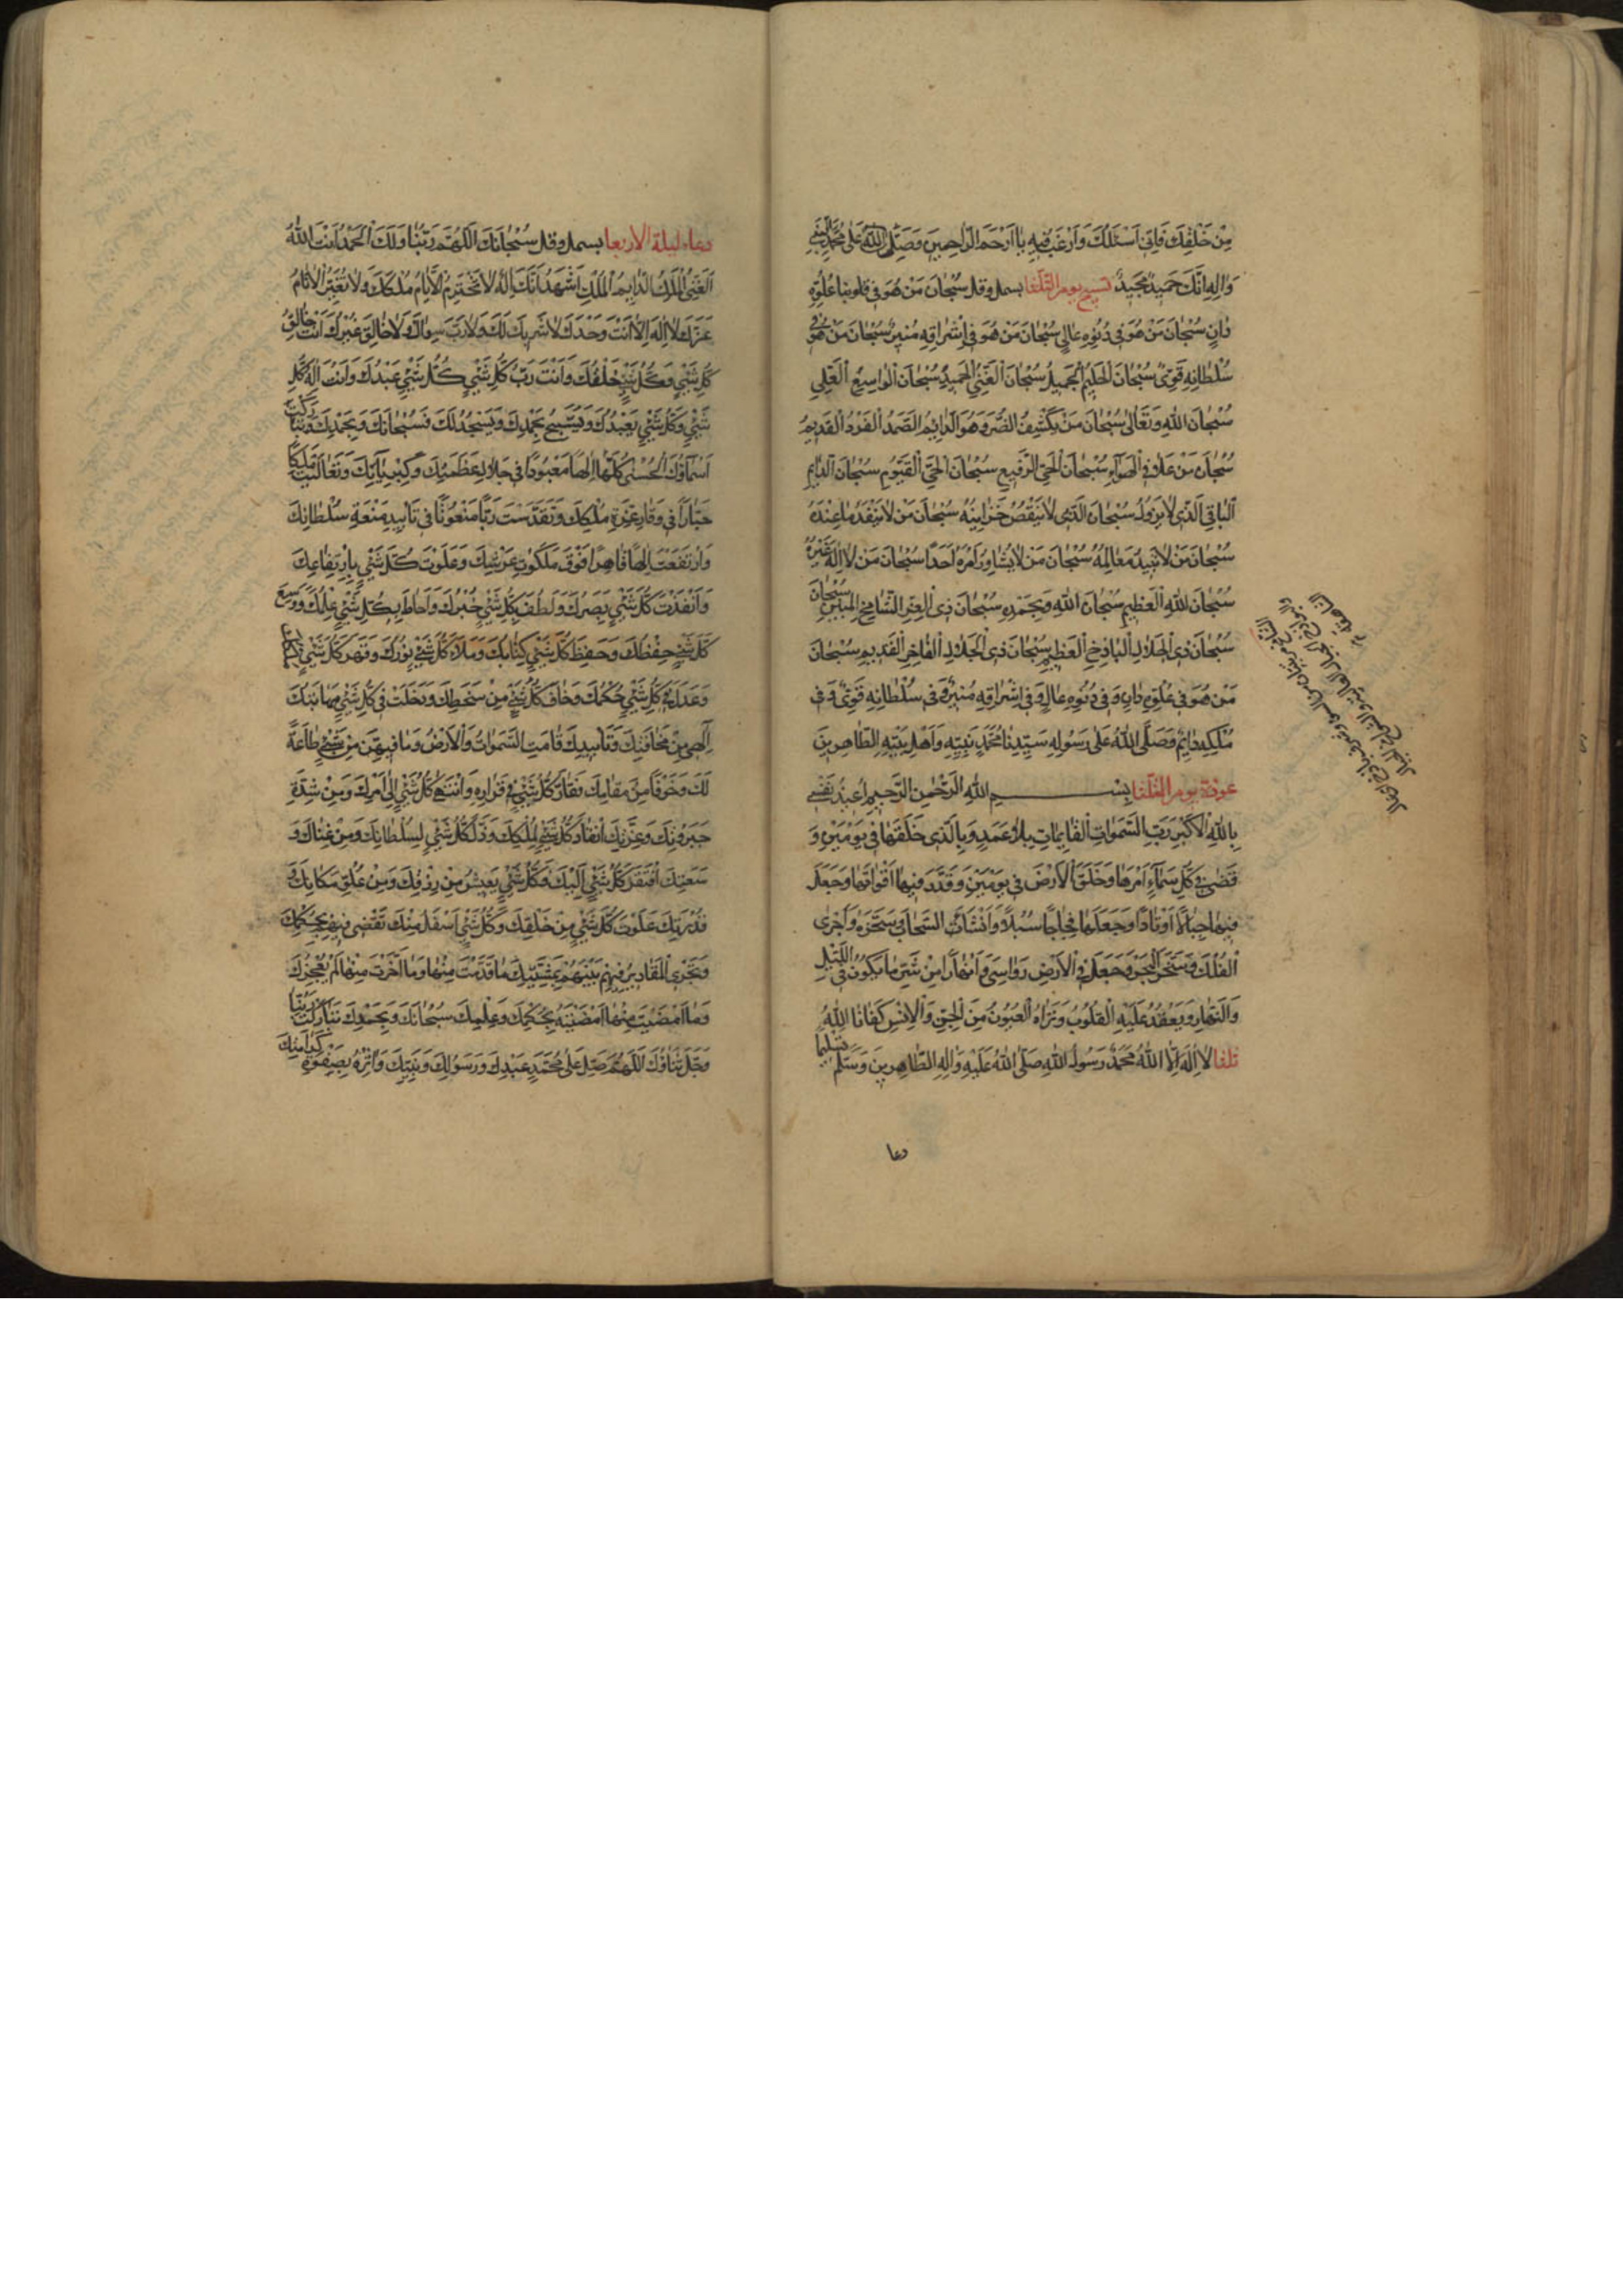 مِنْ خَلْقِكَ فَاِنّى اَسْئَلُكَ وَاَرْغَبُ فيهِ يا اَرْحَمَ الرّاحِمينَ وَصَلَّى اللّهُ عَلى مُحَمَّدٍ
وَالِهِ اِنَّكَ حَميدٌ مَجيدٌ تسبيح يوم الثلثا بسمل وقل سُبْحانَ مَنْ هُوَ فى عُلُوِّهِ
دانٍ سُبْحانَ مَنْ هُوَ فى دُنُوِّهِ عالٍ سُبْحانَ مَنْ هُوَ فى اِشْراقِهِ مُنيرٌ سُبْحانَ مَنْ هُوَ فى
سُلْطانِهِ قَوِىٌّ سُبْحانَ الْحَليمِ الْجَميلِ سُبْحانَ الْغَنِىِّ الْحَميدِ سُبْحانَ الْواسِعِ الْعَلِىِ
سُبْحانَ اللّهِ وَتَعالى سُبْحانَ مَنْ يَكْشِفُ الضُّرَّ وَهُوَ الدّائِمُ الصَّمَدُ الْفَرْدُ الْقَديمُ
سُبْحانَ مَنْ عَلا فِى الْهَواءِ سُبْحانَ الْحَىِّ الرَّفيعِ سُبْحانَ الْحَىِّ الْقَيُّومِ سُبْحانَ الدّائِمِ
الْباقِى الَّذى لا يَزُولُ سُبْحانَ الَّذى لا يَنْقُصُ خَزائِنُهُ سُبْحانَ مَنْ لا يَنْفَدُ ما عِنْدَهُ
سُبْحانَ مَنْ لا تَبيدُ مَعالِمُهُ سُبْحانَ مَنْ لا يُشاوِرُ اَمْرَهُ اَحَدًا سُبْحانَ مَنْ لا اِلهَ غَيْرُهُ
سُبْحانَ اللّهِ الْعَظيمِ سُبْحانَ اللّهِ وَبِحَمْدِهِ سُبْحانَ ذِى الْعِزِّ الشّامِخِ الْمُبينِ سُبْحانَ
سُبْحانَ ذِى الْجَلالِ الْباذِخِ الْعَظيمِ سُبْحانَ ذِى الْجَلالِ الْفاخِرِ الْقَديمِ سُبْحانَ
مَنْ هُوَ فى عُلُوِّهِ دانٍ وَفى دُنُوِّهِ عالٍ وَفى اِشْراقِهِ مُنيرٌ وَفى سُلْطانِهِ قَوِىٌّ وَفى
مُلْكِهِ دائِمٌ وَصَلَّى اللّهُ عَلى رَسُولِهِ سَيِّدِنا مُحَمَّدٍ نَبِيِّهِ وَاَهْلِ بَيْتِهِ الطّاهِرينَ
عوذة يوم الثلثا بِسْمِ اللّهِ الرَّحْمنِ الرَّحيمِ اُعيذُ نَفْسى
بِاللّهِ الْاَكْبَرِ رَبِّ السَّمواتِ الْقائِماتِ بِلا عَمَدٍ وَبِالَّذى خَلَقَها فى يَوْمَيْنِ وَ
قَضى فى كُلِّ سَماءٍ اَمْرَها وَخَلَقَ الْاَرْضَ فى يَوْمَيْنِ وَقَدَّرَ فيها اَقْواتَها وَجَعَلَ
فيها جِبالًا اَوْتادًا وَجَعَلَها فِجاجًا سُبُلًا وَاَنْشَاَ السَّحابَ وَسَخَّرَهُ وَاَجْرى
الْفُلْكَ وَسَخَّرَ الْبَحْرَ وَجَعَلَ فِى الْاَرْضِ رَواسِىَ وَاَنْهارًا مِنْ شَرِّ ما يَكُونُ فِى اللَّيْلِ
وَالنَّهارِ وَيَعْقِدُ عَلَيْهِ الْقُلُوبُ وَتَراهُ الْعُيُونُ مِنَ الْجِنِّ وَالْاِنْسِ كَفانَا اللّهُ
ثلثا لا اِلهَ اِلَّا اللّهُ مُحَمَّدٌ رَسُولُ اللّهِ صَلَّى اللّهُ عَلَيْهِ وَالِهِ الطّاهِرينَ وَسَلَّمَ تَسْليمًا
دعا
دعاء ليلة الاربعا بسمل وقل سُبْحانَكَ اللّهُمَّ رَبَّنا وَلَكَ الْحَمْدُ اَنْتَ اللّهُ
الْغَنِىُّ الدّائِمُ الْمَلِكُ اَشْهَدُ اَنَّكَ اِلهٌ لا تَخْتَرِمُ الْاَيّامُ مُلْكَكَ وَلا تُغَيِّرُ الْاَيّامُ
عِزَّكَ لا اِلهَ اِلّا اَنْتَ وَحْدَكَ لا شَريكَ لَكَ وَلا رَبَّ سِواكَ وَلا خالِقَ غَيْرُكَ اَنْتَ خالِقُ
كُلِّ شَىْءٍ وَكُلُّ شَىْءٍ خَلْقُكَ وَاَنْتَ رَبُّ كُلِّ شَىْءٍ وَكُلُّ شَىْءٍ عَبْدُكَ وَاَنْتَ اِلهُ كُلِّ
شَىْءٍ وَكُلُّ شَىْءٍ يَعْبُدُكَ وَيُسَبِّحُ بِحَمْدِكَ وَيَسْجُدُ لَكَ فَسُبْحانَكَ وَبِحَمْدِكَ تَبارَكَتْ
اَسْماؤُكَ الْحُسْنى كُلُّها اِلهًا مَعْبُودًا فى جَلالِ عَظَمَتِكَ وَكِبْرِيائِكَ وَتَعالَيْتَ مَلِكًا
جَبّارًا فى وَقارِ عِزَّةِ مُلْكِكَ وَتَقَدَّسْتَ رَبًّا مَنْعُوتًا فى تَاْييدِ مَنْعَةِ سُلْطانِكَ
وَارْتَفَعْتَ اِلهًا قاهِرًا فَوْقَ مَلَكُوتِ عَرْشِكَ وَعَلَوْتَ كُلَّ شَىْءٍ بِارْتِفاعِكَ
وَاَنْفَذْتَ كُلَّ شَىْءٍ بَصَرَكَ وَلَطُفَ بِكُلِّ شَىْءٍ خُبْرُكَ وَاَحاطَ بِكُلِّ شَىْءٍ عِلْمُكَ وَوَسِعَ
كُلَّ شَىْءٍ حِفْظُكَ وَحَفِظَ كُلَّ شَىْءٍ كِتابُكَ وَمَلَاَ كُلَّ شَىْءٍ نُورُكَ وَقَهَرَ كُلَّ شَىْءٍ
وَعَدَلَ فى كُلِّ شَىْءٍ حُكْمُكَ وَخافَ كُلُّ شَىْءٍ مِنْ سَخَطِكَ وَدَخَلَتْ فى كُلِّ شَىْءٍ مَهابَتُكَ
اِلهى مِنْ مَخافَتِكَ وَتَاْييدِكَ قامَتِ السَّمواتُ وَالْاَرْضُ وَما فيهِنَّ مِنْ شَىْءٍ طاعَةً
لَكَ وَخَوْفًا مِنْ مَقامِكَ فَتَقارَّ كُلُّ شَىْءٍ فى قَرارِهِ وَانْتَهى كُلُّ شَىْءٍ اِلى اَمْرِكَ وَمِنْ شِدَّةِ
جَبَرُوتِكَ وَعِزَّتِكَ انْقادَ كُلُّ شَىْءٍ لِمُلْكِكَ وَذَلَّ كُلُّ شَىْءٍ لِسُلْطانِكَ وَمِنْ غِناكَ وَ
سَعَتِكَ افْتَقَرَ كُلُّ شَىْءٍ اِلَيْكَ فَكُلُّ شَىْءٍ يَعيشُ مِنْ رِزْقِكَ وَمِنْ عُلُوِّ مَكانِكَ وَ
قُدْرَتِكَ عَلَوْتَ كُلَّ شَىْءٍ مِنْ خَلْقِكَ وَكُلُّ شَىْءٍ اَسْفَلُ مِنْكَ تَقْضى فيهِمْ بِحُكْمِكَ
وَتَجْرِى الْمَقاديرُ فيهِمْ بَيْنَهُمْ بِمَشِيَّتِكَ ما قَدَّمْتَ مِنْها وَما اَخَّرْتَ مِنْها لَمْ يُعْجِزْكَ
وَما اَمْضَيْتَ مِنْها اَمْضَيْتَهُ بِحُكْمِكَ وَعِلْمِكَ سُبْحانَكَ وَبِحَمْدِكَ تَبارَكْتَ رَبَّنا
وَجَلَّ ثَناؤُكَ اللّهُمَّ صَلِّ عَلى مُحَمَّدٍ عَبْدِكَ وَرَسُولِكَ وَنَبِيِّكَ وَاثِرْهُ بِصَفْوِ كَرامَتِكَ